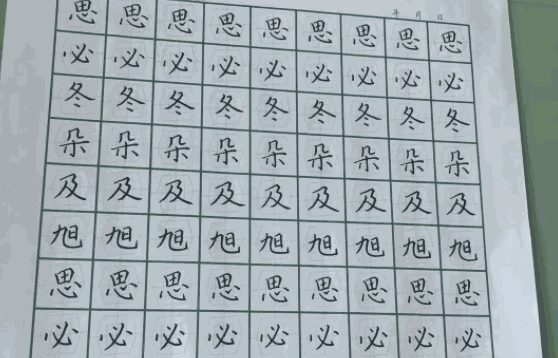 年 月 日
思 思 思 思 思 思 思 思 思
必 必 必 必 必 必 必 必 必
冬 冬 冬 冬 冬 冬 冬 冬 冬
朵 朵 朵 朵 朵 朵 朵 朵 朵
及 及 及 及 及 及 及 及 及
旭 旭 旭 旭 旭 旭 旭 旭 旭
思 思 思 思 思 思 思 思 思
必 必 必 必 必 必 必 必 必